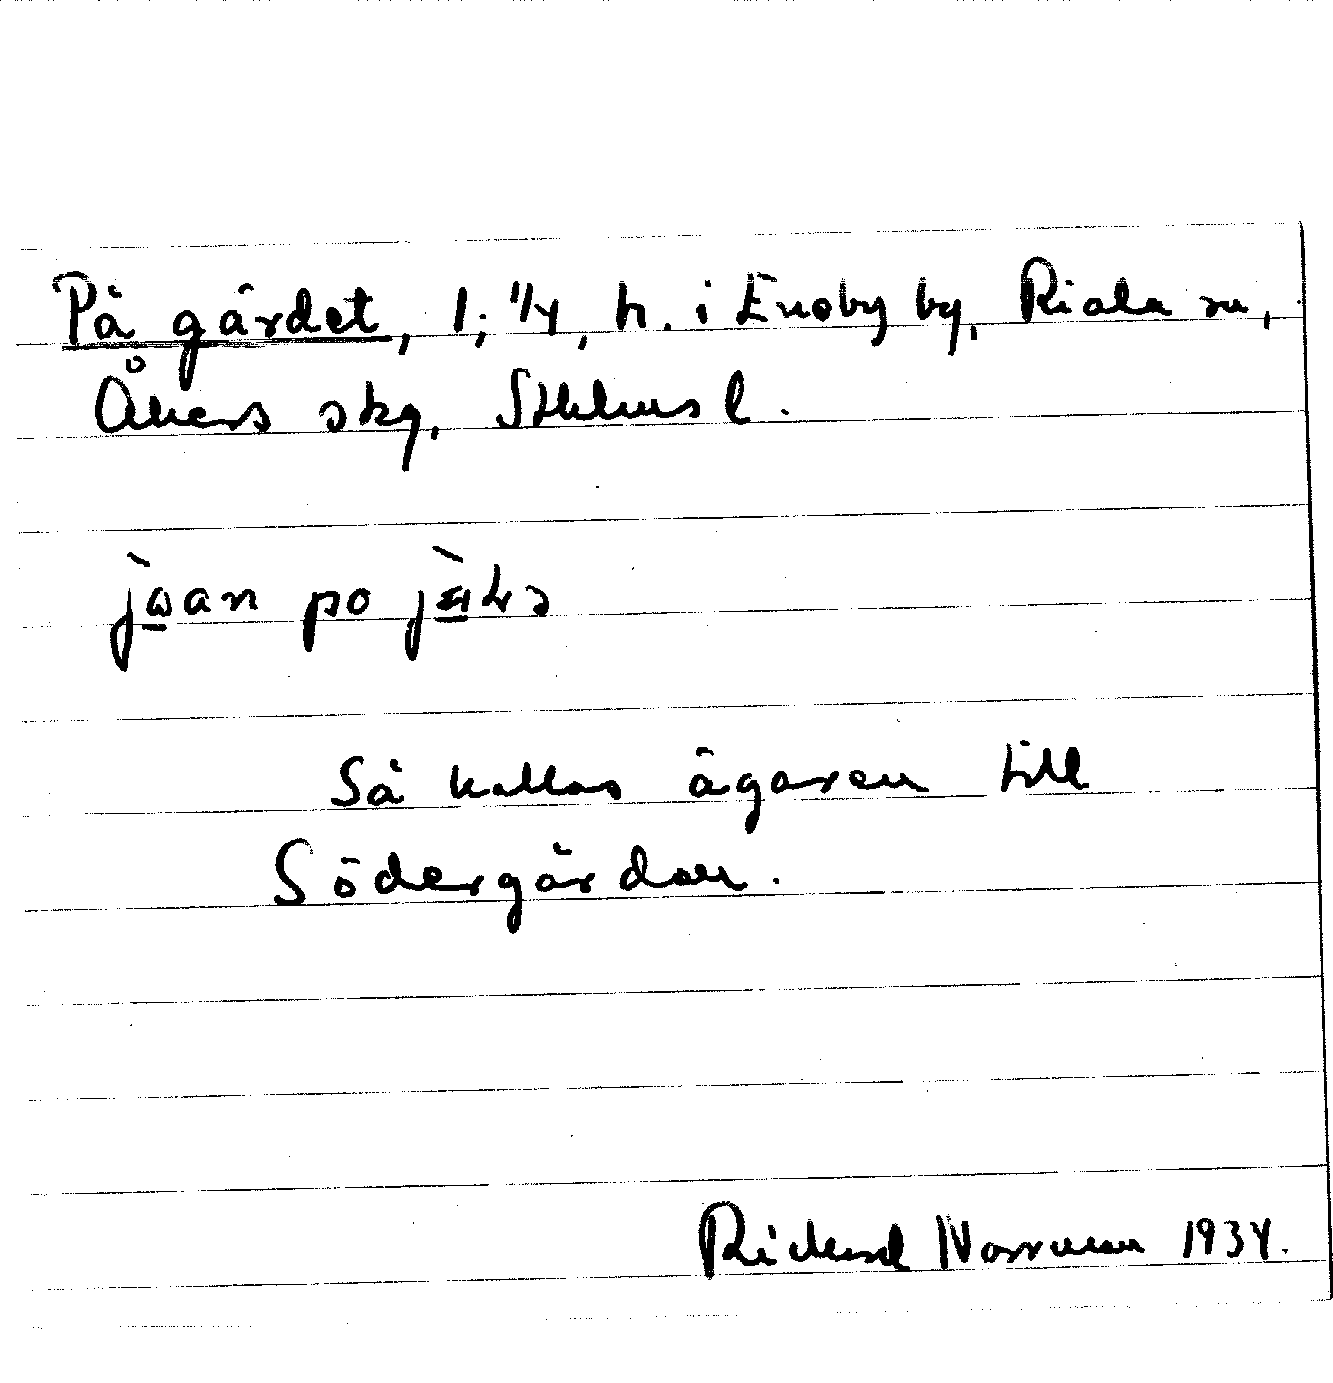 På gärdet, 1; 1/4, h. i Enoby by, Riala sn,
Åkers skg, Sthlms l.
po
Så kallas ägaren till
Södergården.
Rickard Norrman 1934.